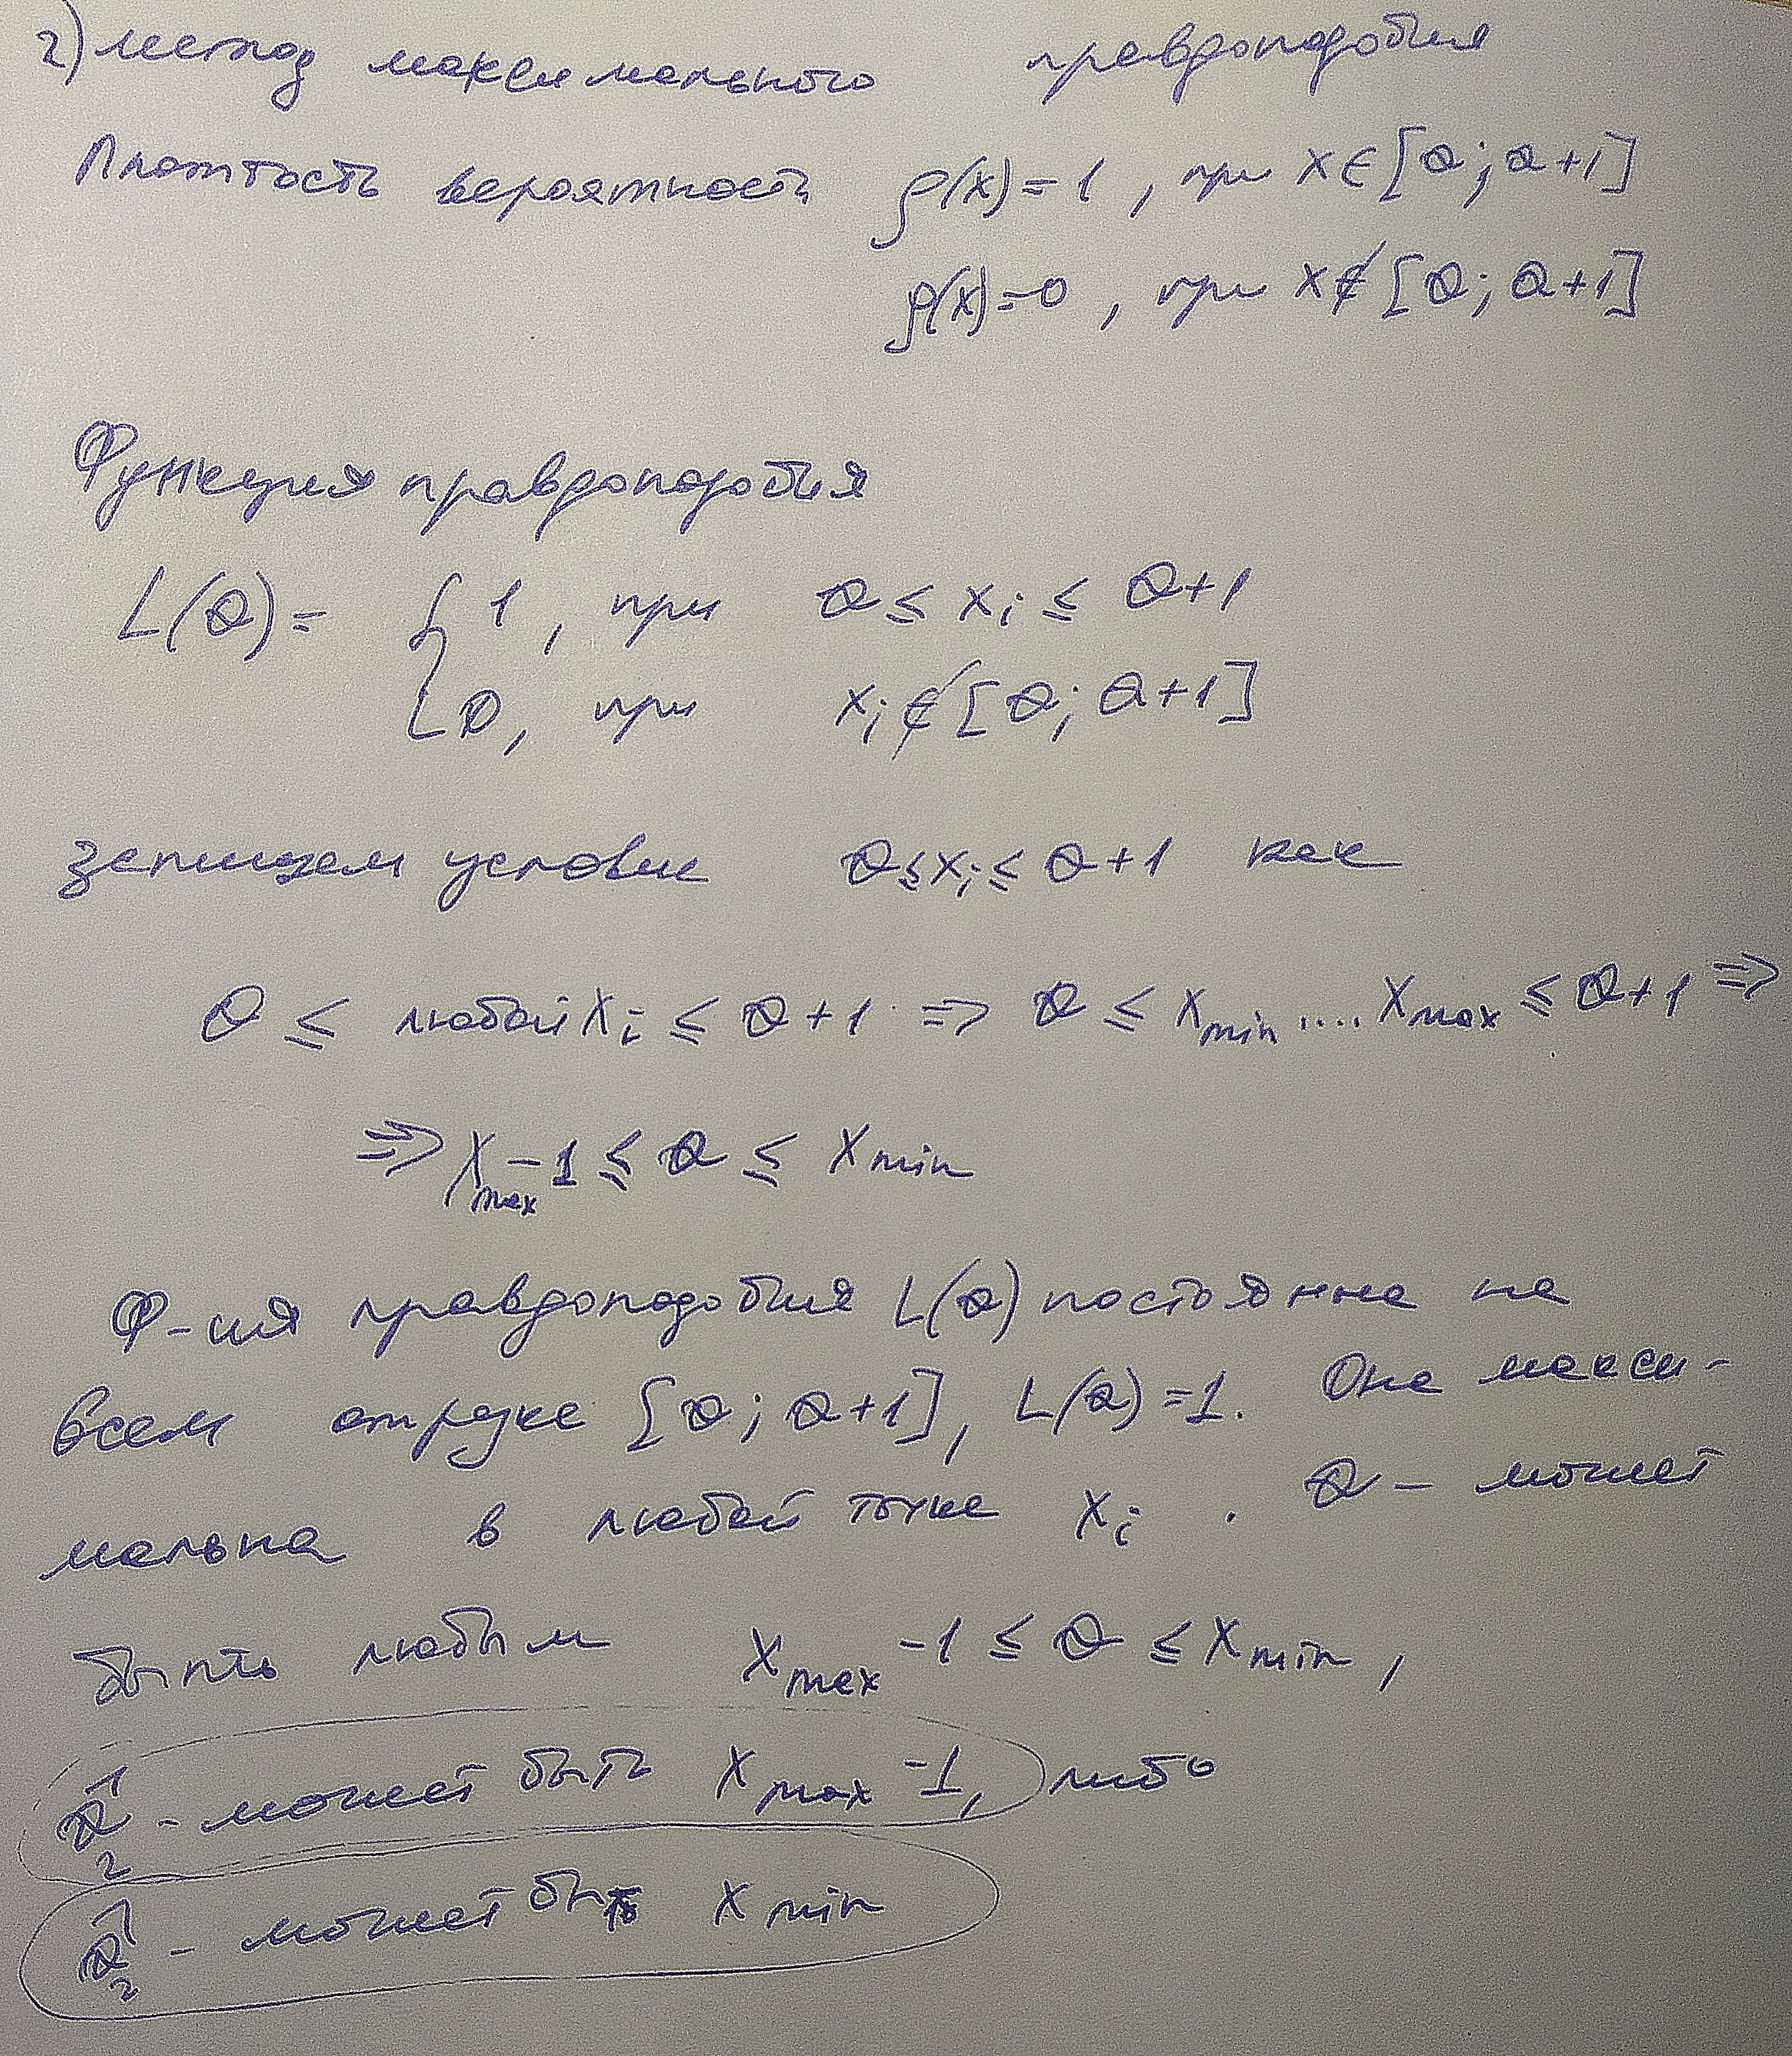 2) метод максимального правдоподобия
Плотность вероятности ρ(x)=1, при x∈[θ; θ+1]
ρ(x)=0, при x∉[θ; θ+1]
Функция правдоподобия
L(θ)= { 1, при θ ≤ xᵢ ≤ θ+1
0, при xᵢ∉[θ; θ+1]
запишем условие θ≤xᵢ≤θ+1 как
θ ≤ любой xᵢ ≤ θ+1 => θ ≤ x_min .... x_max ≤ θ+1 =>
=> x_max -1 ≤ θ ≤ x_min
Ф-ия правдоподобия L(θ) постоянна на
всем отрезке [θ; θ+1], L(θ)=1. Она макси-
мальна в любой точке xᵢ . θ - может
быть любым x_max -1 ≤ θ ≤ x_min,
θ̂₂ - может быть x_max -1, либо
θ̂₂ - может быть x_min